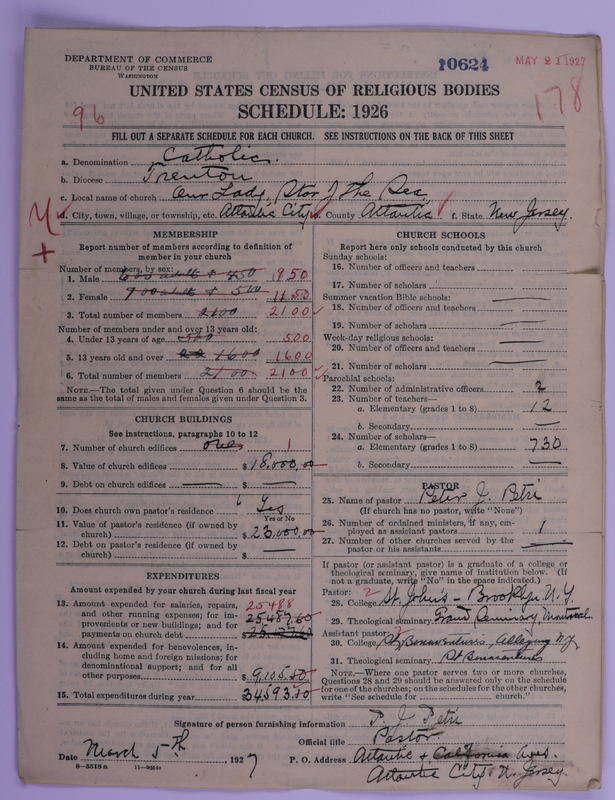 DEPARTMENT OF COMMERCE
BUREAU OF THE CENSUS
WASHINGTON
10624
MAY 21 1927
178
96
UNITED STATES CENSUS OF RELIGIOUS BODIES
SCHEDULE: 1926
FILL OUT A SEPARATE SCHEDULE FOR EACH CHURCH. SEE INSTRUCTIONS ON THE BACK OF THIS SHEET
a. Denomination Catholic.
b. Diocese Trenton
c. Local name of church Our Lady Star of the Sea
d. City, town, village, or township, etc. Atlantic City e. County Atlantic f. State New Jersey.
MEMBERSHIP
Report number of members according to definition of
member in your church
Number of members, by sex:
1. Male 600 adults + 450 950
2. Female 700 adults + 500 1150
3. Total number of members 2100 2100
Number of members under and over 13 years old:
4. Under 13 years of age 500 500
5. 13 years old and over 1600 1600
6. Total number of members 2100 2100
NOTE.—The total given under Question 6 should be the
same as the total of males and females given under Question 3.
CHURCH BUILDINGS
See instructions, paragraphs 10 to 12
7. Number of church edifices one 1
8. Value of church edifices $ 18,000,00
9. Debt on church edifices — $ —
10. Does church own pastor's residence? Yes
Yes or No
11. Value of pastor's residence (if owned by
church) $ 23,000,00
12. Debt on pastor's residence (if owned by
church) $ —
EXPENDITURES
Amount expended by your church during last fiscal year
13. Amount expended for salaries, repairs,
and other running expenses; for im-
provements or new buildings; and for
payments on church debt
25488
25487.60
14. Amount expended for benevolences, in-
cluding home and foreign missions; for
denominational support; and for all
other purposes $ 9,105.50
15. Total expenditures during year
CHURCH SCHOOLS
Report here only schools conducted by this church
Sunday schools:
16. Number of officers and teachers
17. Number of scholars —
Summer vacation Bible schools: —
18. Number of officers and teachers
19. Number of scholars —
Week-day religious schools:
20. Number of officers and teachers —
21. Number of scholars —
Parochial schools:
22. Number of administrative officers 2
23. Number of teachers—
a. Elementary (grades 1 to 8) 12
b. Secondary —
24. Number of scholars—
a. Elementary (grades 1 to 8) 730
b. Secondary —
PASTOR
25. Name of pastor Peter J. Petri
(If church has no pastor, write "None")
26. Number of ordained ministers, if any, em-
ployed as assistant pastors 1
27. Number of other churches served by the
pastor or his assistants —
If pastor (or assistant pastor) is a graduate of a college or
theological seminary, give name of institution below. (If
not a graduate, write "No" in the space indicated.)
Pastor: 2
28. College St. John's - Brooklyn N.Y.
29. Theological seminary Grand Seminary Montreal
Assistant pastor:
30. College St Bonaventures, Allegany N.Y.
31. Theological seminary St Bonaventures
NOTE.—Where one pastor serves two or more churches,
Questions 28 and 29 should be answered only on the schedule
for one of the churches; on the schedules for the other churches,
write "See schedule for church."
Signature of person furnishing information P. J. Petri
Official title Pastor
Date March 5th, 1927
P. O. Address Atlantic + California Aves.
Atlantic City N. Jersey.
8—5518a